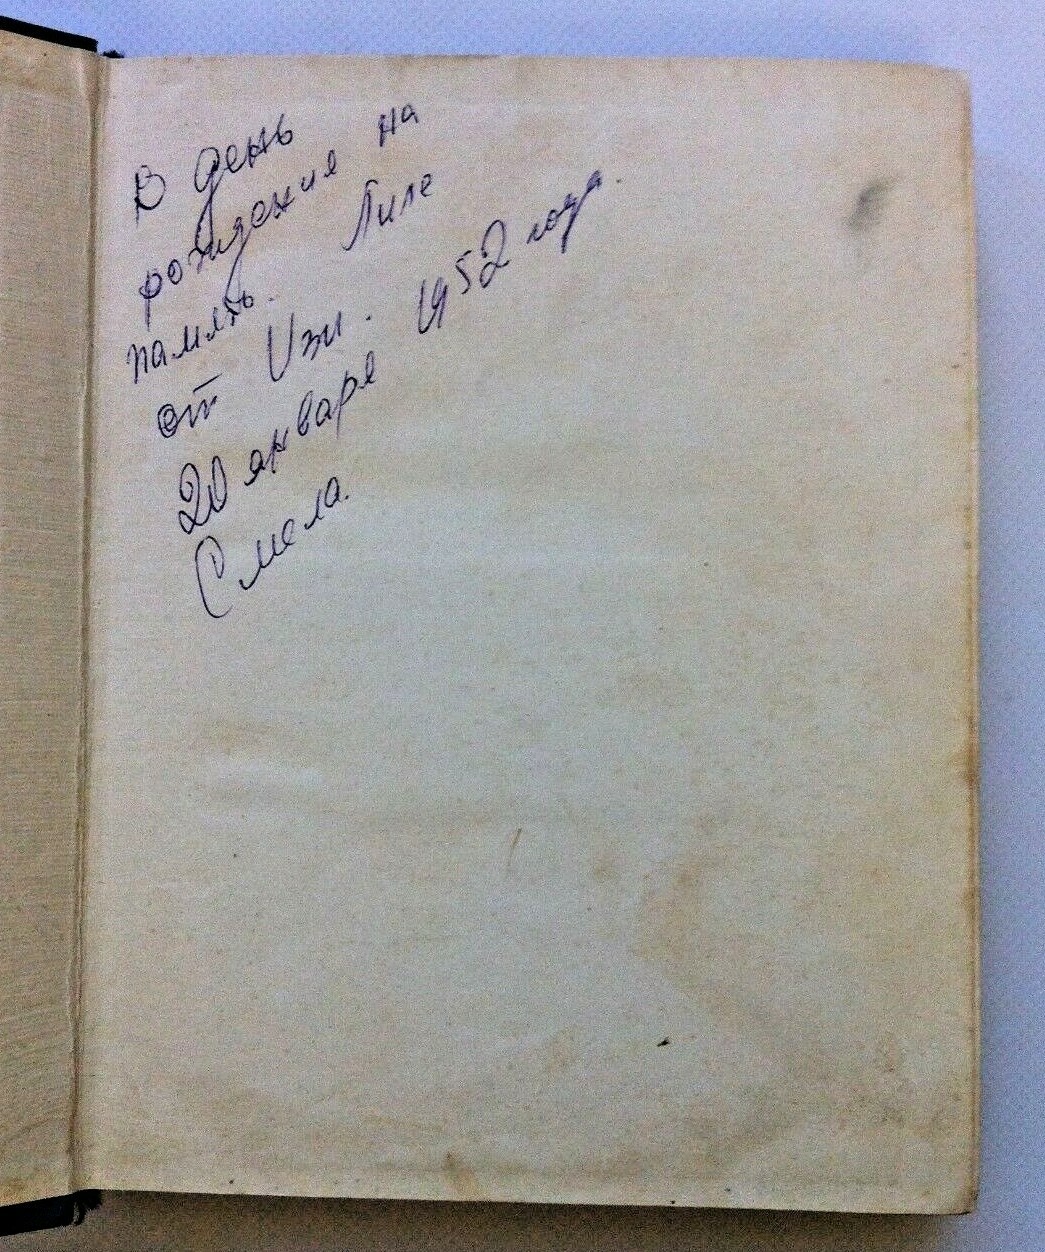 В день
рождения на
память. Лиле
от Изи.
20 января 1952 года.
Смела.